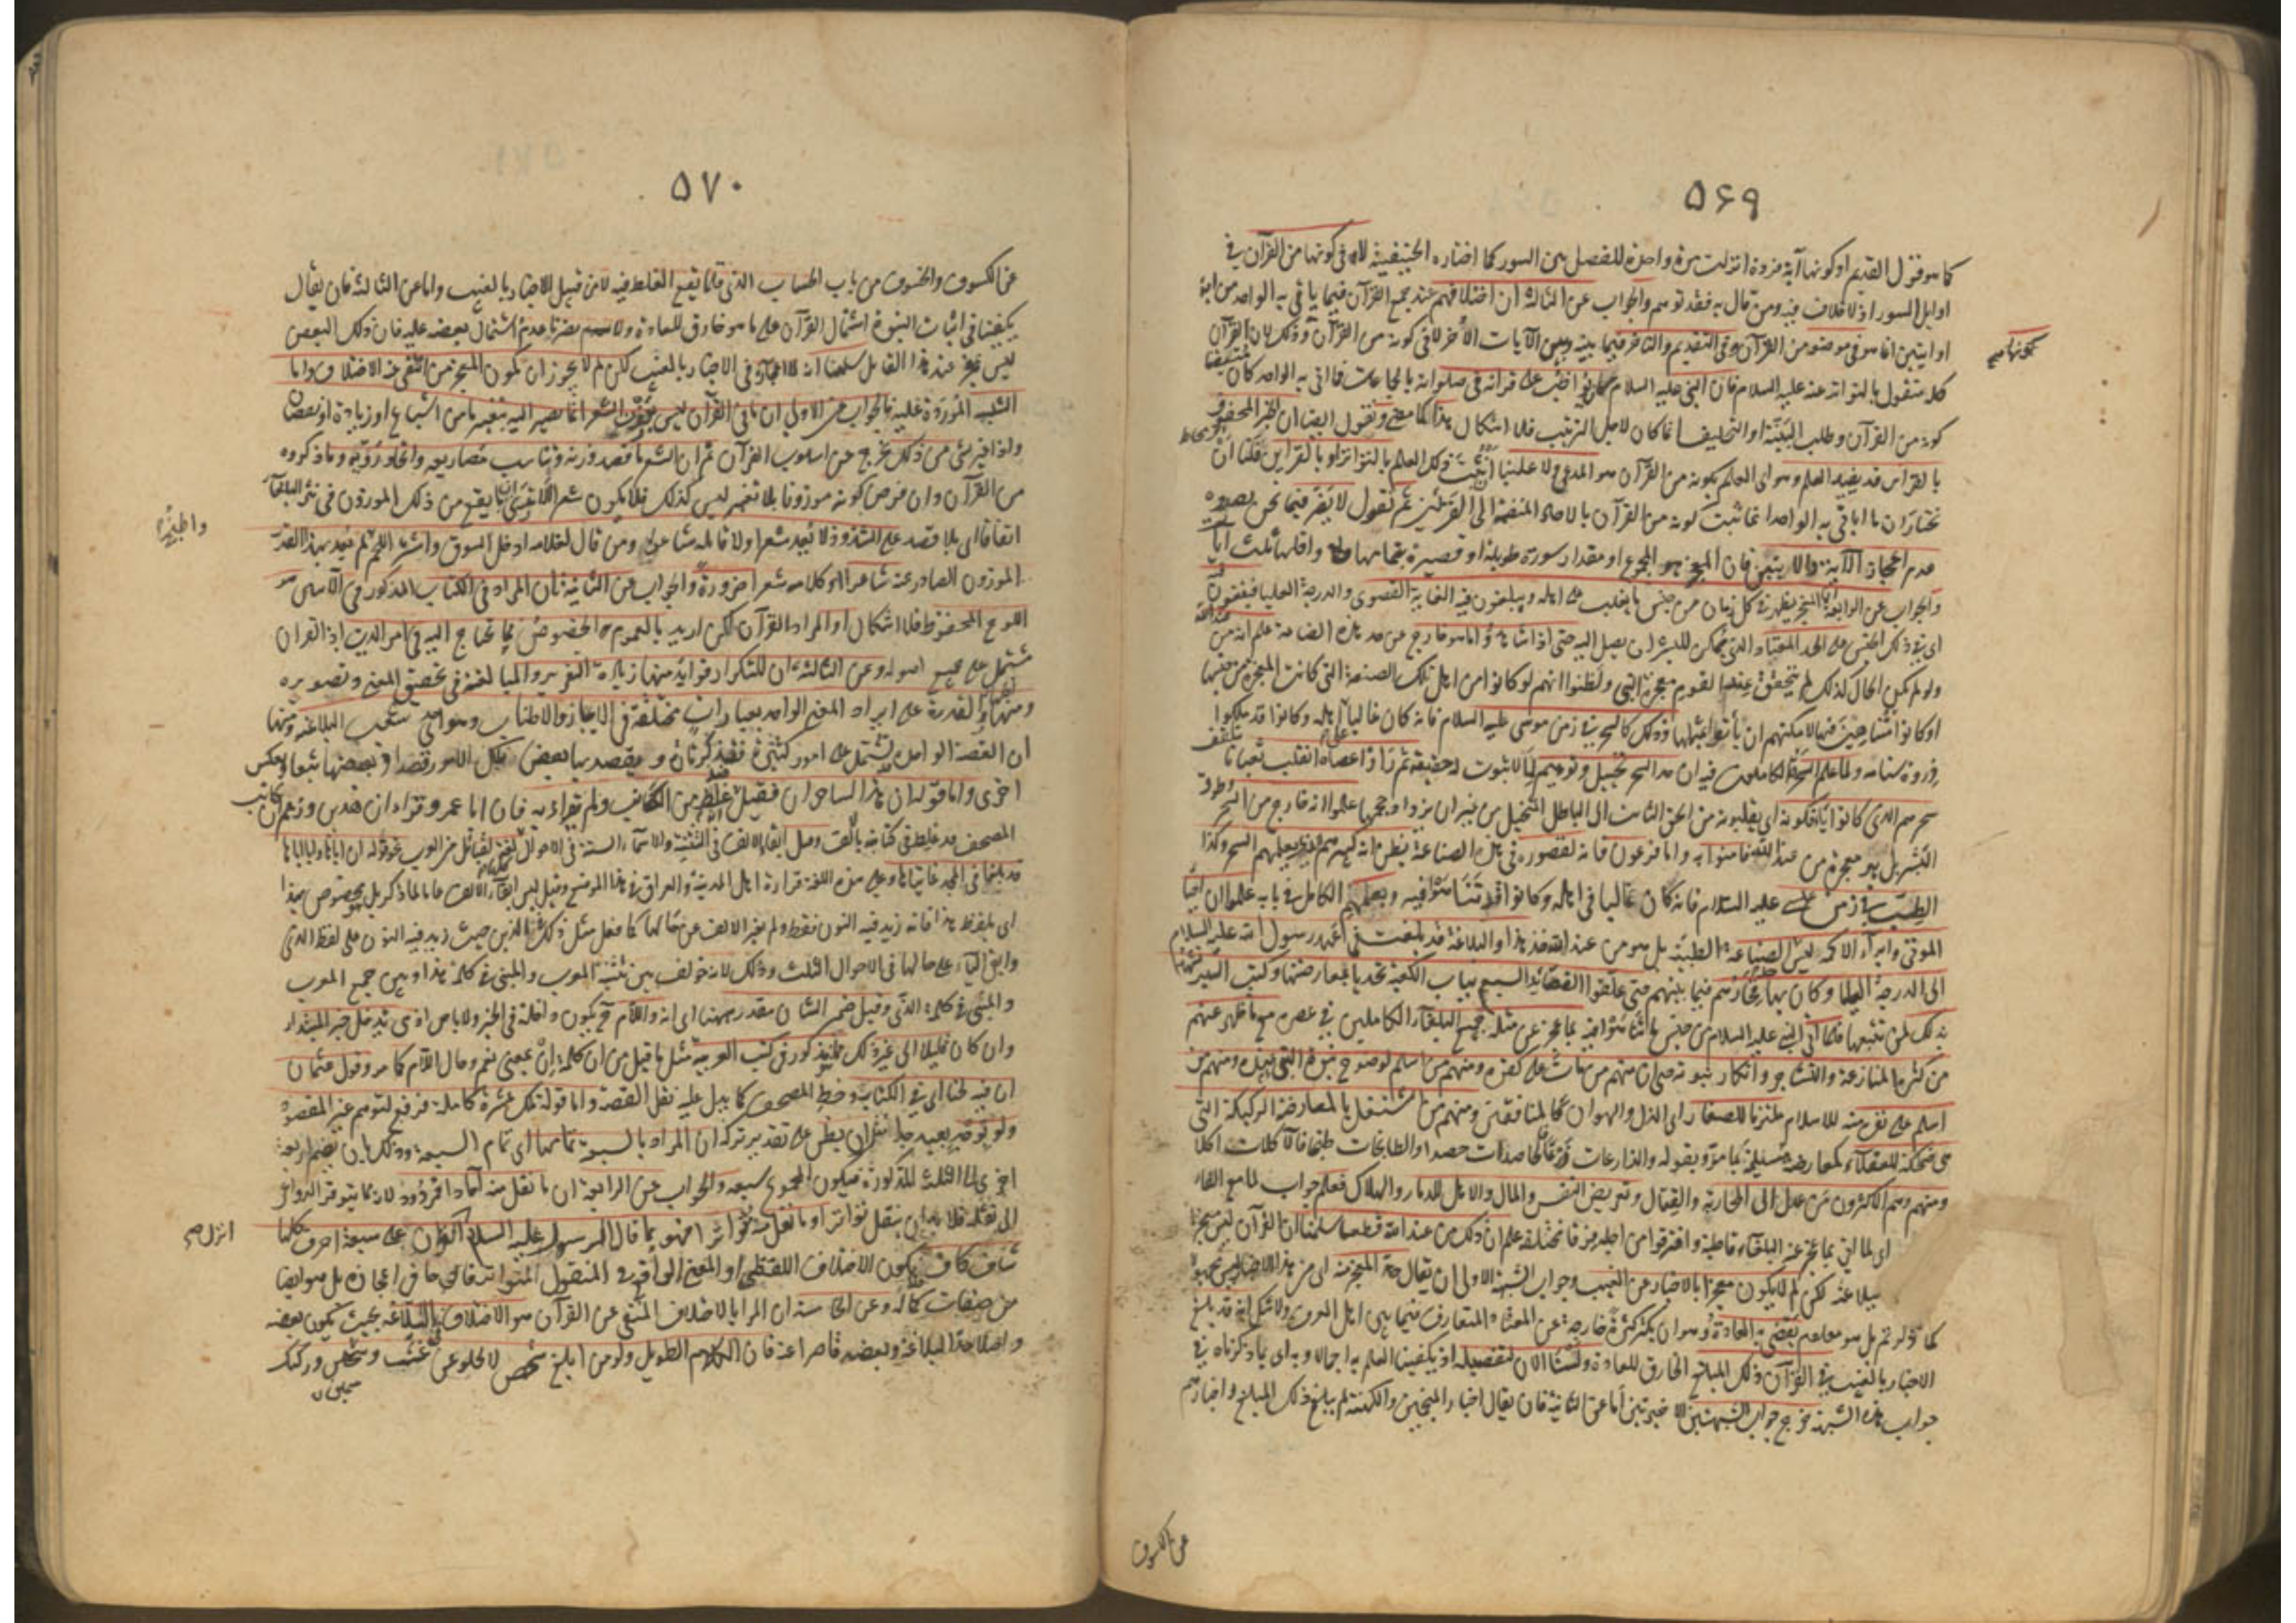 ۵۶۹
كما هو قول القديم او كونها آية فردة انزلت مرة واحدة للفصل بين السور كما اختاره الحنفية لا في كونها من القرآن في
اوايل السور اذ لا خلاف فيه ومن قال به فقد توهم والجواب عن الثالثة ان اختلافهم عند جمع القرآن فيما ياتي به الواحد من آية
او آيتين انما هو في موضعه من القرآن وفي التقديم والتاخر فيما بينه وبين الآيات الأخر لا في كونه من القرآن وذلك لان القرآن
كله منقول بالتواتر عنه عليه السلام فان النبي عليه السلام كان يواظب على قراته في صلواته بالجماعات فما اتى به الواحد كان متيقنا
كونه من القرآن وطلب البينة او التحليف انما كان لاجل الترتيب فلا اشكال هذا كما مضى ونقول ايضا ان الخبر المحفوف
بالقراين قد يفيد العلم وهو اى العلم بكونه من القرآن هو المدعى لا علينا ان يثبت ذلك العلم بالتواتر او بالقراين فلنا ان
نختار ان ما اتى به الواحد انما ثبت كونه من القرآن بالآحاد المنضمة الى القراين ثم نقول لا يضر فيما نحن بصدده
عدم اعجاز الآية والآيتين فان المعجز هو المجموع او مقدار سورة طويلة او قصيرة بتمامها واقلها ثلث آيات
والجواب عن الرابعة ان المعجز يظهر في كل زمان من جنس ما يغلب على اهله ويبلغون فيه الغاية القصوى والدرجة العليا فيقفون فيه
اى في ذلك الجنس على الحد المعتاد الذى يمكن للبشر ان يصل اليه حتى اذا شاهدوا ما هو خارج عن حد هذه الصناعة علم انه من عند الله
ولو لم يكن الحال كذلك لم يتحقق عند القوم معجزة النبي ولظنوا انهم لو كانوا من اهل تلك الصنعة التى كانت المعجزة من جنسها
او كانوا متناهين فيها لامكنهم ان يأتوا بمثلها وذلك كالسحر في زمن موسى عليه السلام فانه كان غالبا على اهله وكانوا قد ملكوا
ذروة سنامه ولما علم السحرة الكاملون فيه ان حد السحر تخييل وتوهيم لما لا ثبوت له حقيقة ثم راوا عصاه انقلبت ثعبانا تلقف
سحرهم الذى كانوا يأفكونه اى يقلبونه من الحق الثابت الى الباطل المتخيل من غير ان يزداد حجمها علموا انه خارج من السحر وطوق
البشر بل هو معجزة من عند الله فآمنوا به واما فرعون فانه لقصوره في تلك الصناعة يظن انه كبيرهم الذى يعلمهم السحر وكذا
الطب في زمن عيسى عليه السلام فانه كان غالبا في اهله وكانوا قد تناهوا فيه وبعلمهم الكامل في بابه علموا ان احياء
الموتى وابراء الاكمه ليس لصناعة الطبية بل هو من عند الله هذا والبلاغة قد بلغت في عهد رسول الله عليه السلام
الى الدرجة العليا وكان بها فخارهم فيما بينهم حتى علقوا القصايد السبع بباب الكعبة تحديا بمعارضتها وكتب السير تشهد
بذلك لمن تتبعها فلما اتى النبي عليه السلام من جنس ما تناهوا فيه بما عجز عن مثله جميع البلغاء الكاملين في عصره مع ما ظهر عنهم
من كثرة المنازعة والتشاجر وانكار نبوته حتى ان منهم من مات على كفره ومنهم من اسلم لوضوح نبوة النبي عنده ومنهم من
اسلم على نفرة منه للاسلام ملتزما للصغار اى الذل والهوان كالمنافقين ومنهم من اشتغل بالمعارضة الركيكة التى
هى ضحكة للعقلاء كمعارضة مسيلمة بما مر وبقوله والزارعات زرعا فالحاصدات حصدا والطابخات طبخا فالآكلات اكلا
ومنهم وهم الاكثرون من عدل الى المحاربة والقتال وتعريض النفس والمال والاهل للدمار والهلاك فعلم جواب لما مع الفاء
اى لما اتى بما عجز عنه البلغاء قاطبة وافترقوا من اجله فرقا مختلفة علم ان ذلك من عند الله قطعا سلمنا ان القرآن ليس معجزا
ببلاغته لكن لم لا يكون معجزا بالاخبار عن الغيب وجواب الشبهة الاولى ان يقال حد المعجز منه اى من هذا الاخبار ليس مجهولا
كما ذكرتم بل هو معلوم يقضى به العادة وهو ان يكثر كثرة خارجة عن المعتاد المتعارف فيما بين اهل العرف ولا شك انه قد بلغ
الاخبار بالغيب في القرآن ذلك المبلغ الخارق للعادة ولسنا الآن لتفصيله اذ يكفينا العلم به اجمالا وبه اى بما ذكرناه في
جواب هذه الشبهة خرج جواب الشبهتين الاخيرتين اما عن الثانية فان يقال اخبار المنجمين والكهنة لم يبلغ ذلك المبلغ واخبارهم
بكونها صح
عن الكسوف
۵۷۰
عن الكسوف والخسوف من باب الحساب الذى قلما يقع الغلط فيه لا من قبيل الاخبار بالغيب واما عن الثالثة فان يقال
يكفينا في اثبات النبوة اشتمال القرآن على ما هو خارق للعادة ولا يضرنا عدم اشتمال بعضه عليه فان ذلك البعض
ليس بمعجز عند هذا القايل سلمنا انه لا اعجاز في الاخبار بالغيب لكن لم لا يجوز ان يكون المعجز هو انتفى عنه الاختلاف واما
الشبه الموردة عليه فالجواب عن الاولى ان ما في القرآن ليس بموزون الشعر انما يصير اليه بتغيير ما من اشباع او زيادة او نقصان
واذا غير شئ من ذلك خرج عن اسلوب القرآن ثم ان الشعر ما قصد وزنه وتناسب مصاريعه واتحاد رويه وما ذكروه
من القرآن وان فرض كونه موزونا بلا تغيير ليس كذلك فلا يكون شعرا الا ترى ان ما يقع من ذلك الموزون في نثر البلغاء
اتفاقا اى بلا قصد على الشذوذ لا يعد شعرا ولا قائله شاعرا ومن قال لغلامه ادخل السوق واشتر اللحم لم يعد بهذا القدر
الموزون الصادر عنه شاعرا ولا كلامه شعرا ضرورة والجواب عن الثانية ان المراد في الكتاب المذكور في الآيتين هو
اللوح المحفوظ فلا اشكال او المراد القرآن لكن اريد بالعموم الخصوص مما يحتاج اليه في امر الدين اذ القرآن
مشتمل على جميع اصوله وعن الثالثة ان للتكرار فوايد منها زيادة التقرير والمبالغة في تحقيق المعنى وتصويره
ومنها اظهار القدرة على ايراد المعنى الواحد بعبارات مختلفة في الايجاز والاطناب وهو احدى شعب البلاغة ومنها
ان القصة الواحدة تشتمل على امور كثيرة فتذكر تارة ويقصد بها بعض تلك الامور قصدا وبعضها تبعا وبعكس
اخرى واما قوله ان هذان لساحران فقيل غلط من الكاتب ولم يقرأ به فان ابا عمرو قرأ ان هذين وزعم ان كاتب
المصحف قد غلط في كتابته بالالف وقيل ابقاء الالف في التثنية والاسماء الستة في الاحوال لغة لقبائل من العرب نحو قوله ان اباها وابا اباها
قد بلغا في المجد غايتاها وعلى هذه اللغة قراءة اهل المدينة والعراق في هذا الموضع وقيل ليس ابقاء الالف عاما لما ذكر بل مخصوص بهذا
اى بلفظ هذا فانه زيد فيه النون فقط ولم يغير الالف عن حالها كما فعل مثل ذلك بالذين حيث زيد فيه النون على لفظ الذى
وابقى الياء على حالها في الاحوال الثلث وذلك لانه خولف بين تثنية المعرب والمبنى في كلمة هذا وبين جمع المعرب
والمبنى في كلمة الذى وقيل ضمير الشان مقدر ههنا اى انه واللام ح يكون داخلة في الخبر ولا باس اذ هى تدخل خبر المبتدا
وان كان قليلا الى غير ذلك مما يذكر في كتب العربية مثل ما قيل من ان كلمة ان بمعنى نعم وحال اللام كما مر وقول عثمان
ان فيه لحنا اى في الكتابة وخط المصحف كما يدل عليه نقل القصة واما قوله تلك عشرة كاملة فرفع لتوهم غير المقصود
ولو بوجه بعيد جدا مثل ان يظن على تقدير تركه ان المراد بالسبعة تمامها اى تمام السبعة وذلك بان يضم اربعة
اخرى الى الثلثة المذكورة فيكون المجموع سبعة والجواب عن الرابعة ان ما نقل منه آحادا فمردود لانه مما يتوفر الدواعى
الى نقله فلا بد ان ينقل تواترا وما نقل منه تواترا فهو مما قال الرسول عليه السلام القرآن على سبعة احرف كلها
شاف كاف فيكون الاختلاف اللفظى او المعنوى الواقع في المنقول المتواتر قادحا في اعجازه بل هو ايضا
من صفات كماله وعن الخامسة ان المراد بالاختلاف المنفى عن القرآن هو الاختلاف بالبلاغة بحيث يكون بعضه
واصلا حد البلاغة وبعضه قاصرا عنه فان الكلام الطويل ولو من ابلغ شخص لا يخلو عن غث وسمين وركيك
والخبز
انزل صح